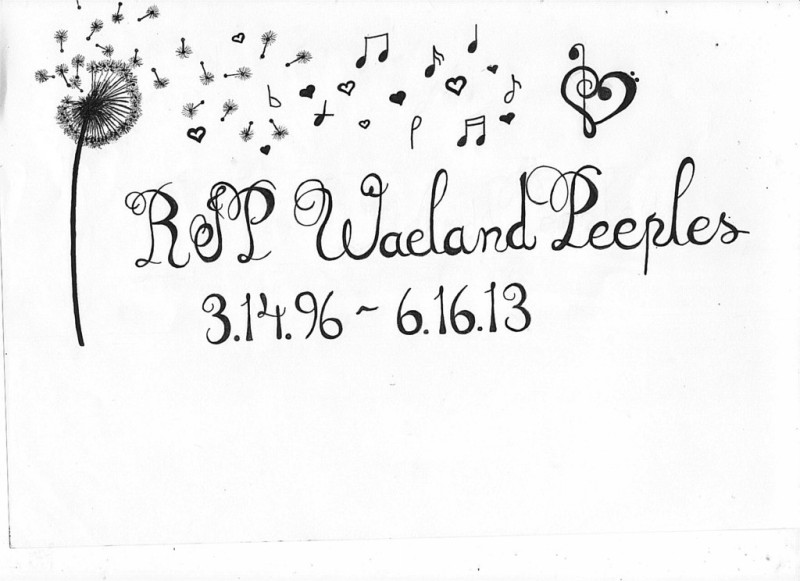 RIP Waeland Peeples
3.14.96 ~ 6.16.13